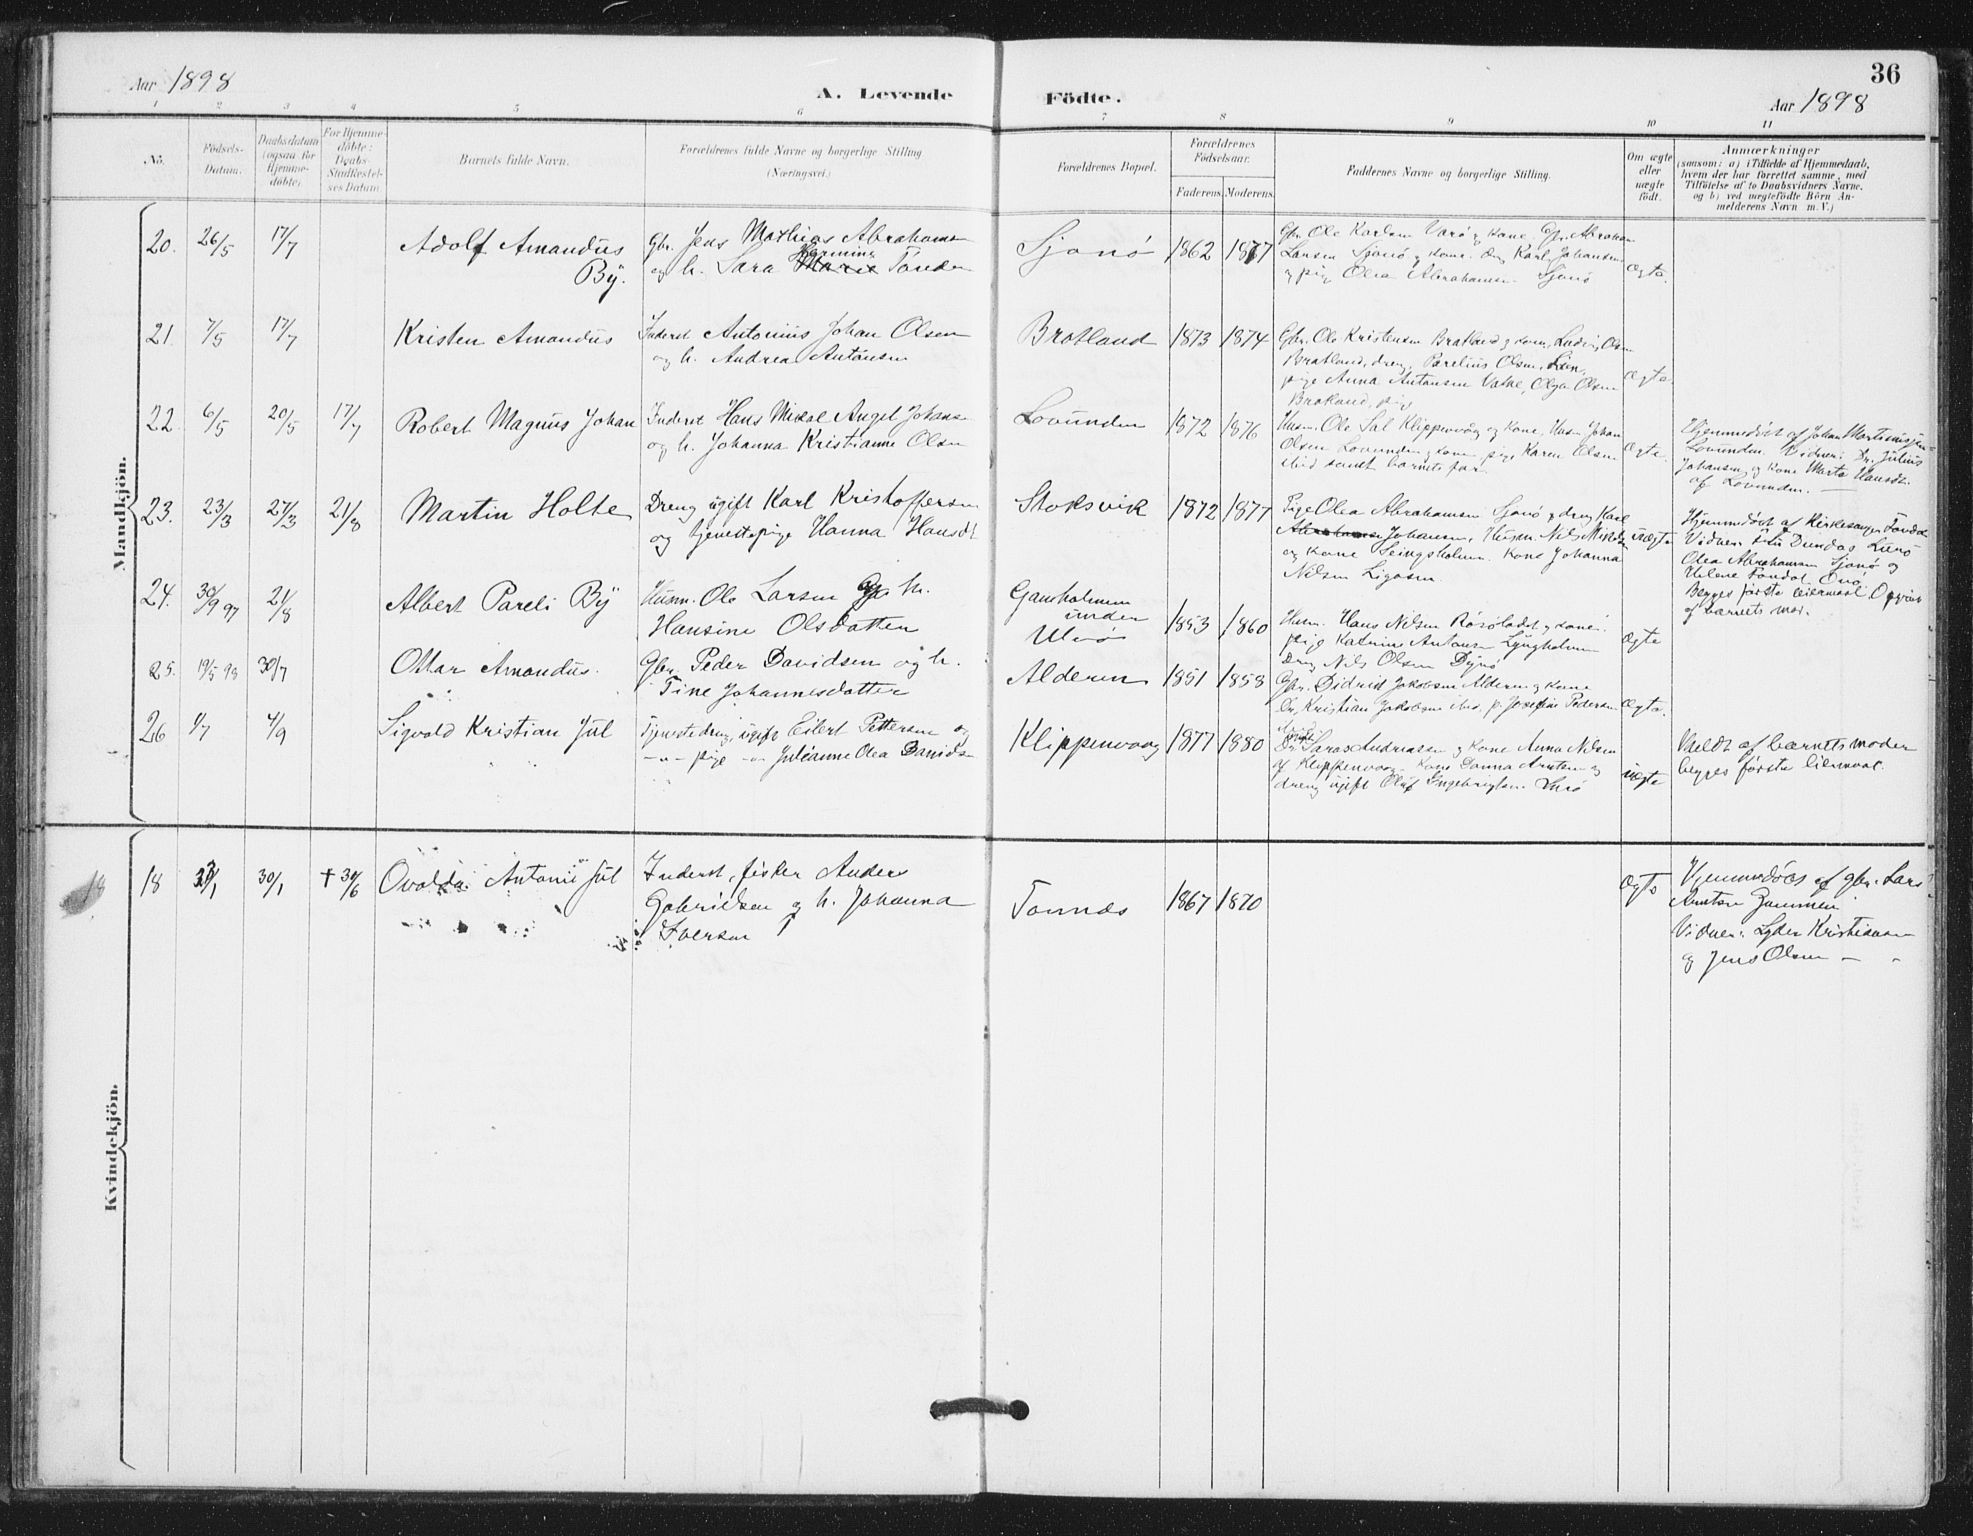 Aar 1898
A. Levende Födte.
36
Aar 1898
1 2 3 4 5 6 7 8 9 10 11
No.
Födsels-
Datum.
Daabsdatum
(ogsaa for
Hjemme-
döbte).
For Hjemme-
döbte:
Daabs-
Stadfæstel-
ses Datum
Barnets fulde Navn.
Forældrenes fulde Navne og borgerlige Stilling
(Næringsvei.)
Forældrenes Bopæl.
Forældrenes
Födselsaar.
Faderens. Moderens.
Faddernes Navne og borgerlige Stilling.
Om ægte
eller
uægte
födt.
Anmærkninger
(saasom: a) i Tilfælde af Hjemmedaab,
hvem der har forrettet samme, med
Tilföielse af to Daabsvidners Navne,
og b) ved uægtefödte Börn An-
melderens Navn m. V.)
Mandkjön.
20. 26/5 17/7
Adolf Amandus
By.
Gbr. Jens Mathias Abrahamsen
og h. Sara Marie Tönder
Sjonö 1862 1877
Gbr. Ole Karlsen Varö og kone, Gbr. Abraham
Larsen Sjonö og kone. dreng Karl Johansen
og pige Olea Abrahamsen Sjonö
ægte.
21. 7/5 17/7
Kristen Amandus
Inderst Antonius Johan Olsen
og h. Andrea Antonsen
Bratland 1873 1874
Gbr. Ole Kristensen Bratland og kone, Ludvig Olsen
Bratland, dreng, Parelius Olsen,
pige Anna Antonsen Valne, Olga Olsen
Bratland, pige
ægte.
22. 6/5 20/5 17/7
Robert Magnus Johan
Inderst Hans Mikal Angel Johans
og h. Johanna Kristianne Olsen
Lovunden 1872 1876
Husm. Ole Sal Klippenvaag og kone, Husm Johan
Olsen Lovunden og kone, pige Karen Olsen
ibid samt barnets far.
ægte.
Hjemmedöbt af Johan Martinusjen-
Lovunden. Vidner: Dr. Julius
Johansen og kone Marta Hansdt.
af Lovunden. —
23. 23/3 27/3 21/8
Martin Holte
Dreng ugift Karl Kristoffersen
og tjenestepige Hanna Hansdt
Stoksvik 1872 1877
Pige Olea Abrahamsen Sjonö, dreng Karl
Johansen, Husm. Nils Mikalsen
og kone Seingsholmen. Kone Johanna
Nilsen
uægte
Hjemmedöbt af Kirkesanger Fondal
Vidner: Dundas Lurö
Olea Abrahamsen Sjonö og
Helene Fondal Onö
Begges förste leiermaal. Opgivet
af barnets mor.
24. 30/9 97 21/8
Albert Pareli By
Husm. Ole Larsen og h.
Hansine Olsdatter
Gausholmen
under
1853 1860
Husm. Hans Nilsen og kone.
pige Katrine Antonsen Lyngholmen
Dreng Nils Olsen
ægte
25. 19/5 98 30/7
Ottar Amandus.
Gbr. Peder Davidsen og h.
Tine Johannesdatter
Alderen 1851 1858
Gbr. Didrik Jakobsen Alderen og kone
Dr. Kristian Jakobsen ibid, p. Josefine Pedersen
ægte.
26 1/7 4/9
Sigvald Kristian Jul
Tjenestedreng, ugift Eilert Pettersen og
—"— pige —"— Julianne Olea Danielsen
Klippenvaag 1877 1880
Andreassen og kone Anna Nilsen
af Klippenvaag. Kone Danna Arntsen og
dreng ugift Oluf Ingebrigtsen Lurö
uægte
Meldt af barnets moder
begges förste leiermaal.
Kvindekjön.
18
18 30/1 † 30/6
Ovolda Antonie Jul
Inderst, fisker Anders
Gabrielsen og h. Johanna
Iversen
Tonnæs 1867 1870
ægte
Hjemmedöbt af gbr. Lars
Arntsen
Vidner: Lyder Kristiansen
og Jens Olsen —